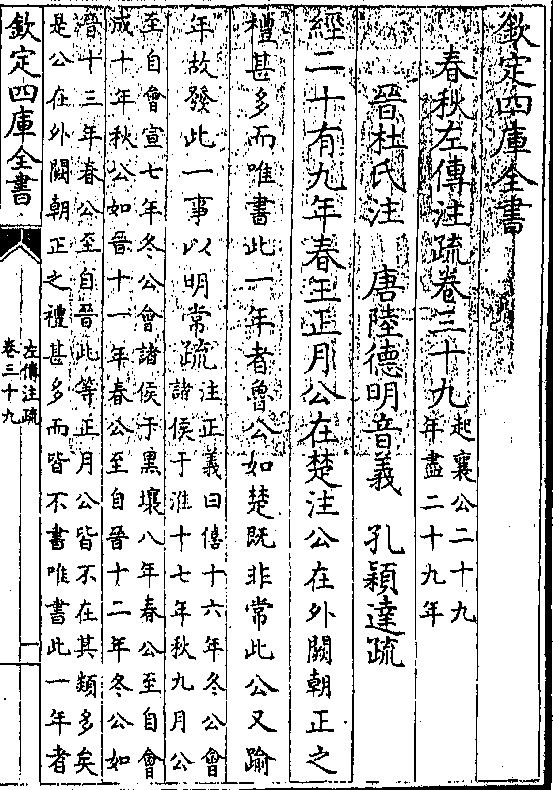 欽定四庫全書
春秋左傳注疏卷三十九起襄公二十九
年盡二十九年
晉杜氏注　唐陸德明音義　孔穎達疏
經二十有九年春王正月公在楚注公在外闕朝正之
禮甚多而唯書此一年者魯公如楚既非常此公又踰
年故發此一事以明常疏注正義曰僖十六年冬公會
諸侯于淮十七年秋九月公
至自會宣七年冬公會諸侯于黑壤八年春公至自會
成十年秋公如晉十一年春公至自晉十二年冬公如
晉十三年春公至自晉此等正月公皆不在其類多矣
是公在外闕朝正之禮甚多而皆不書唯書此一年者
欽定四庫全書
左傳注疏
卷三十九
一